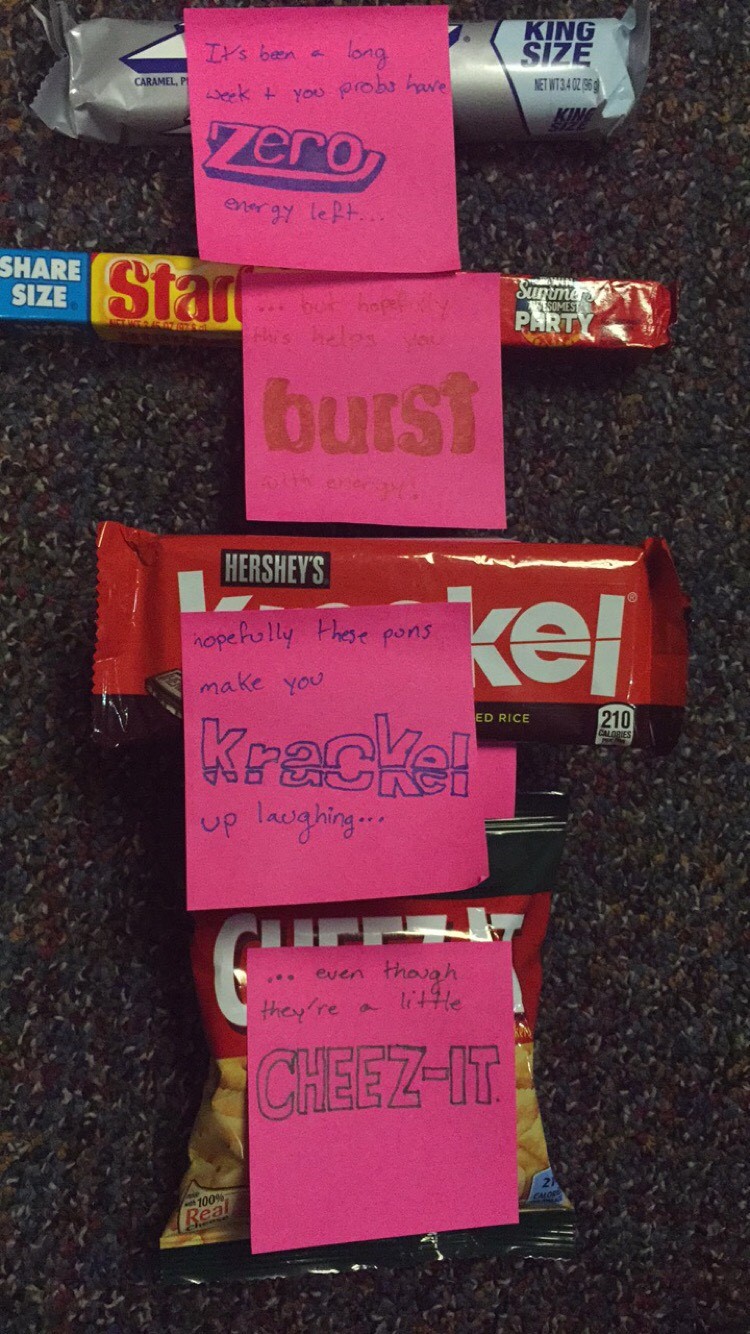 KING
SIZE
CARAMEL,
NET WT 3.4 OZ (96 g)
KING
SIZE
It's been a long
week + you probs have
zero
energy left...
SHARE
SIZE
Star
NET WT 3.45 OZ
... but hopefully
this helps you
burst
with energy!
Summer's
PARTY
HERSHEY'S
kel
ED RICE
210
CALORIES
hopefully these puns
make you
Krackel
up laughing...
CHEEZ-IT
... even though
they're a little
CHEEZ-IT.
with 100%
Real
cheese